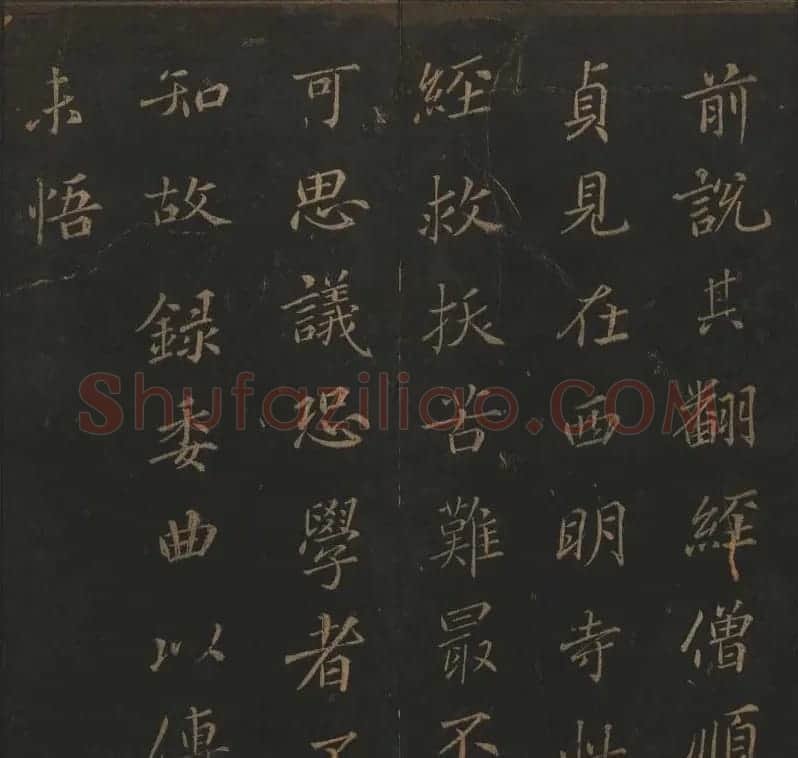 前說其翻經僧順
貞見在西明寺
經救扷苦難最不
可思議恐學者
知故録委曲以傳
未悟
Shufaziliao.COM